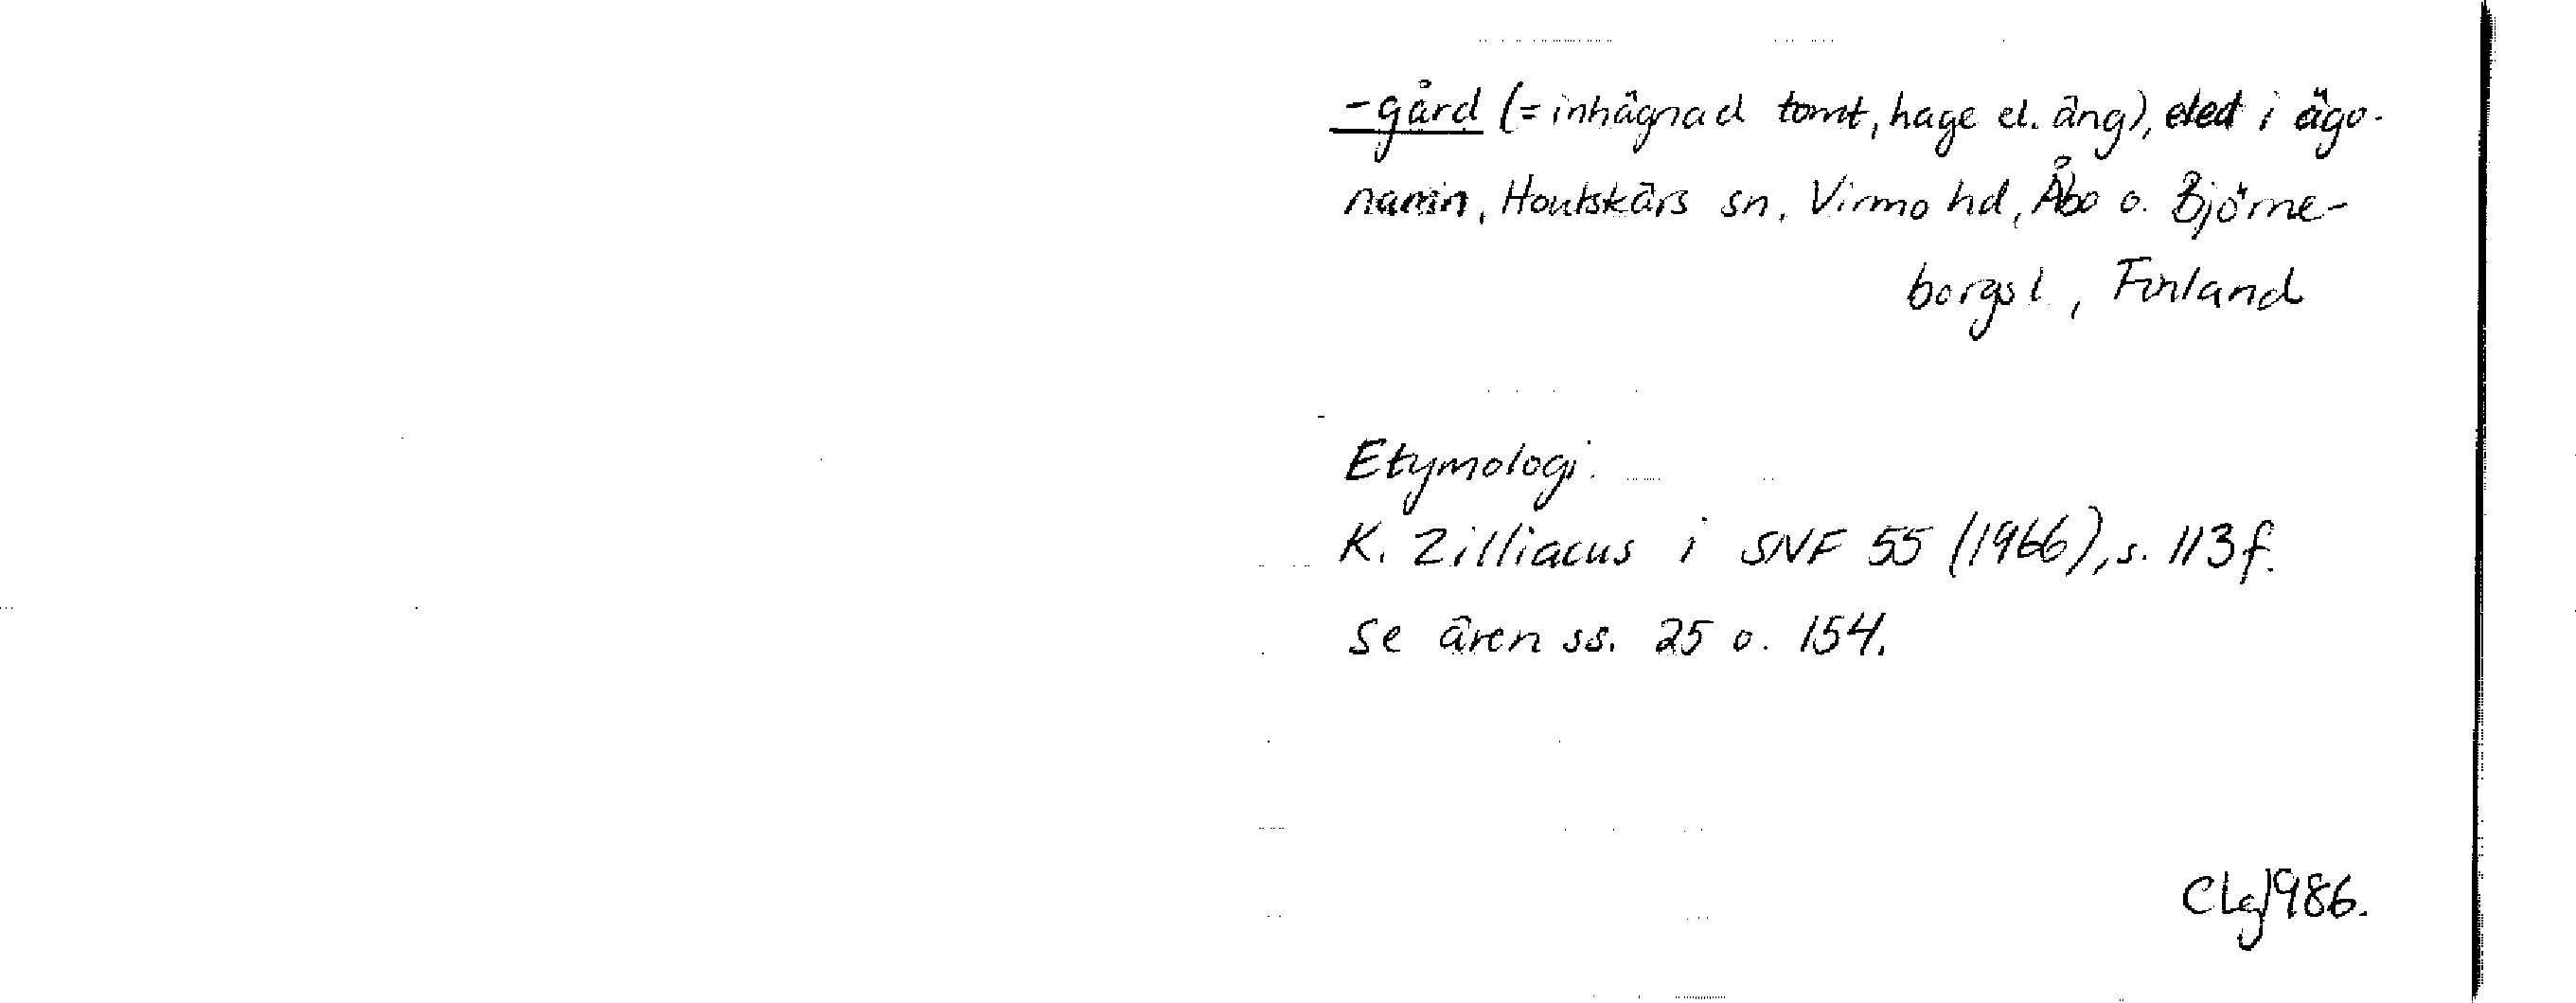 -gård (= inhägnad tomt, hage el. äng), eled i ägo-
namn, Houtskärs sn, Virmo hd, Åbo o. Björne-
borgs l, Finland
Etymologi.
K. Zilliacus i SNF 55 (1966), s. 113 f.
Se även ss. 25 o. 154.
CLg 1986.